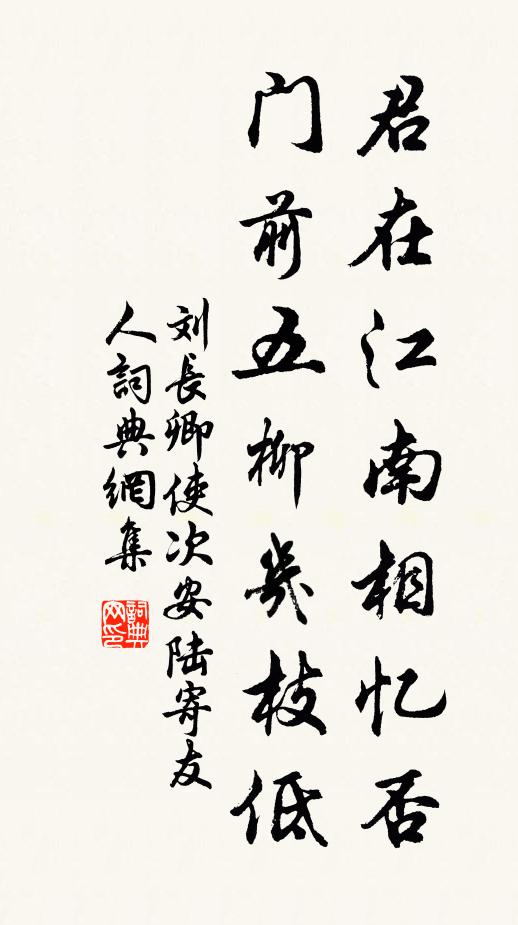 君在江南相忆否
门前五柳幾枝低
刘長卿使次安陸寄友
人詞典網集
詞典网印